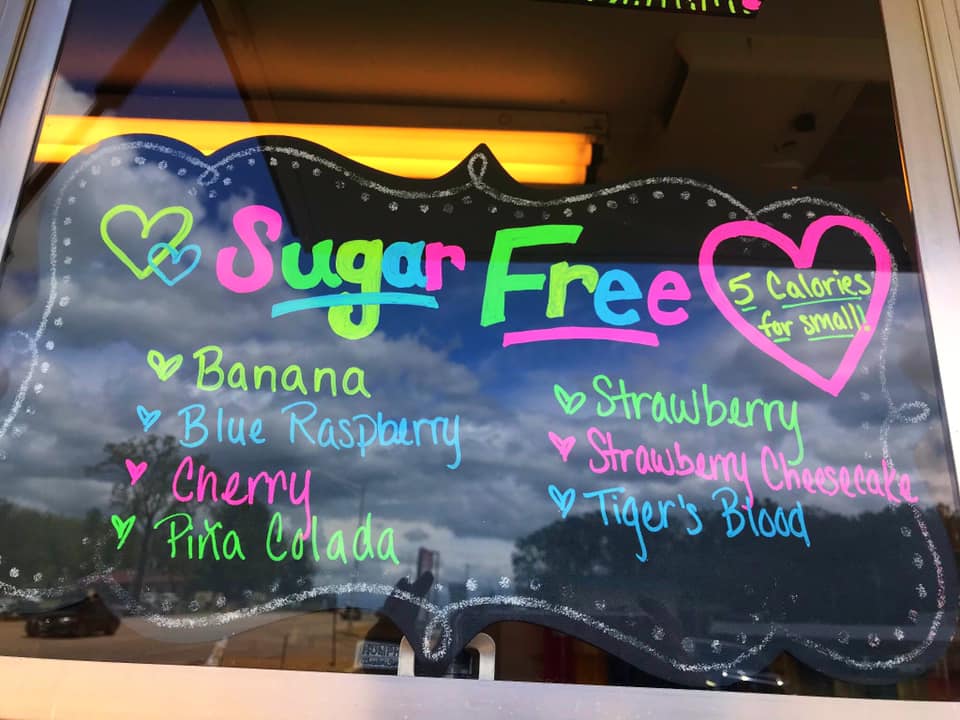 Sugar Free
5 Calories
for small!
Banana
Blue Raspberry
Cherry
Piña Colada
Strawberry
Strawberry Cheesecake
Tiger's Blood